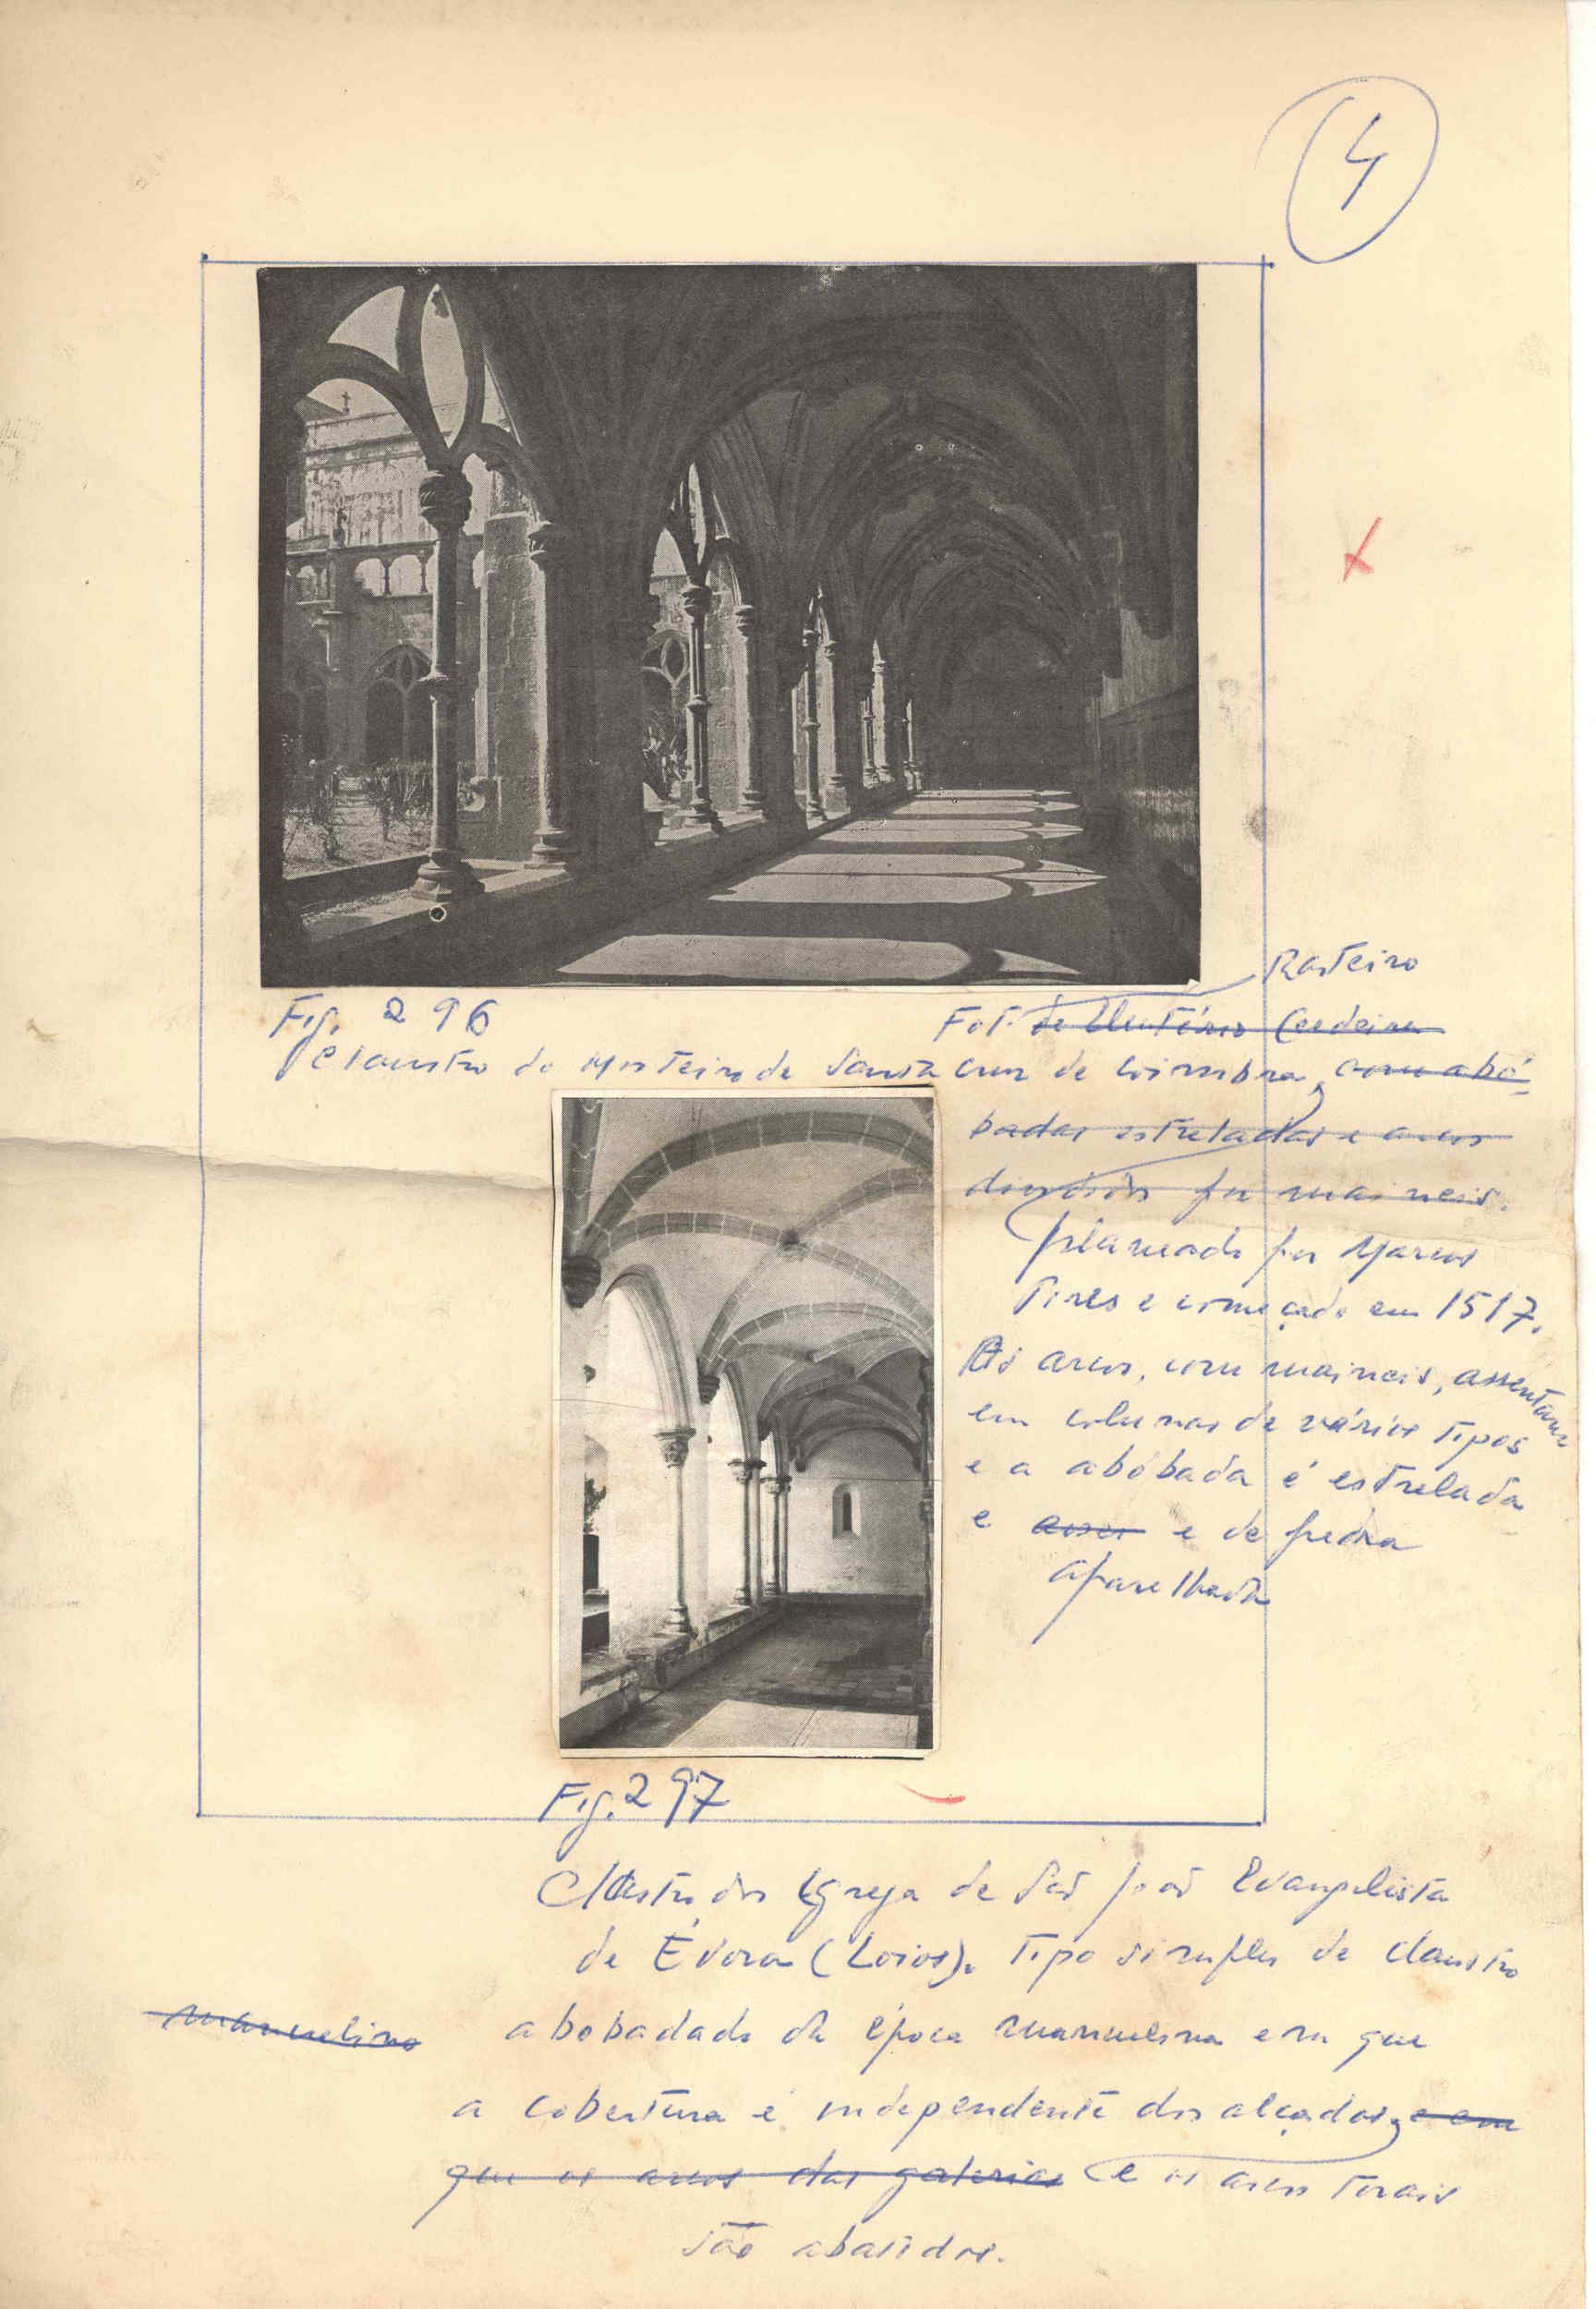 4
Rasteiro
Fig. 296
Fot. de Cerdeira
Claustro do Mosteiro de Santa Cruz de Coimbra, com abó-
badas estreladas e arcos
divididos por maineis.
planeado por Marcos
Pires e começado em 1517.
Os arcos, com maineis, assentam
em colunas de vários tipos
e a abóbada é estrelada
e e de pedra
aparelhada
Fig. 297
Claustro da Igreja de São João Evangelista
de Évora (Loios). Tipo simples de claustro
manuelino
abobadado da época manuelina em que
a cobertura é independente dos alçados, e em
que os arcos das galerias e os arcos torais
são abatidos.